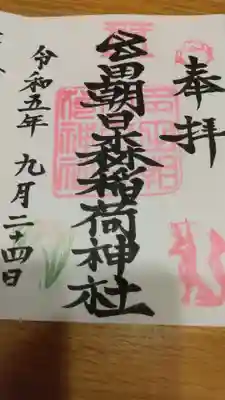 奉拝
田朝日森稲荷神社
令和五年 九月二十四日